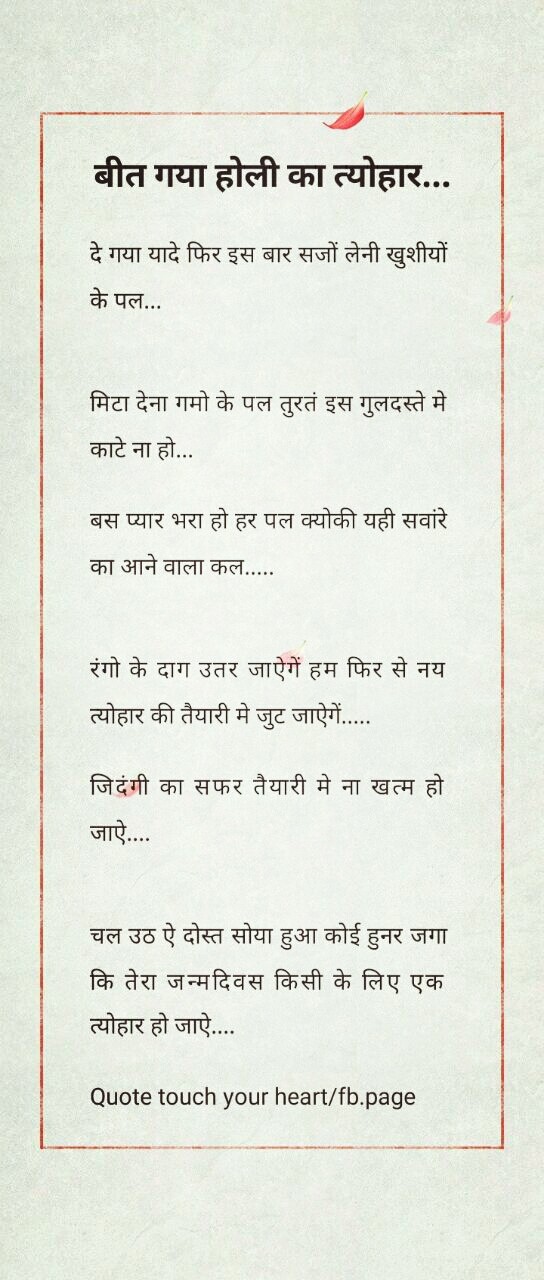 बीत गया होली का त्योहार...
दे गया यादे फिर इस बार सजों लेनी खुशीयों
के पल...
मिटा देना गमो के पल तुरतं इस गुलदस्ते मे
काटे ना हो...
बस प्यार भरा हो हर पल क्योकी यही सवांरे
का आने वाला कल.....
रंगो के दाग उतर जाऐगें हम फिर से नय
त्योहार की तैयारी मे जुट जाऐगें.....
जिदंगी का सफर तैयारी मे ना खत्म हो
जाऐ....
चल उठ ऐ दोस्त सोया हुआ कोई हुनर जगा
कि तेरा जन्मदिवस किसी के लिए एक
त्योहार हो जाऐ....
Quote touch your heart/fb.page